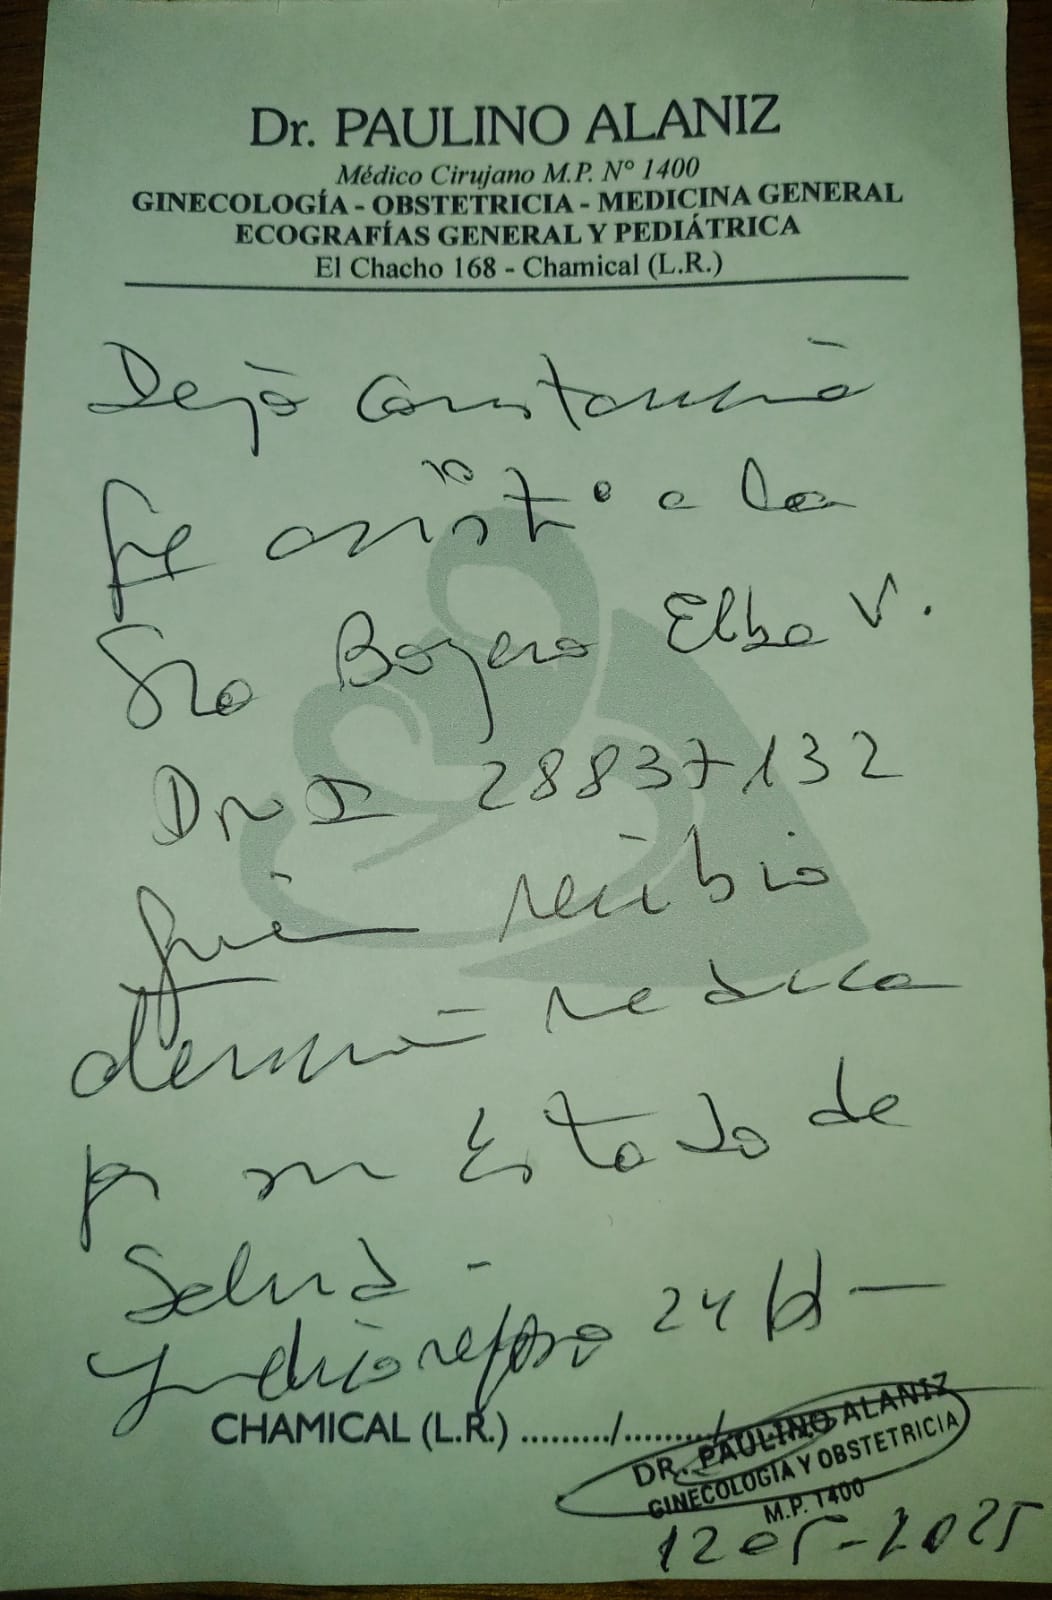 Dr. PAULINO ALANIZ
Médico Cirujano M.P. Nº 1400
GINECOLOGÍA - OBSTETRICIA - MEDICINA GENERAL
ECOGRAFÍAS GENERAL Y PEDIÁTRICA
El Chacho 168 - Chamical (L.R.)
Dejo constancia
que asisto a la
Sra Elba V.
DNI 28837132
quien recibio
atención médica
por su Estado de
Salud -
Indico reposo 24 H -
CHAMICAL (L.R.) ........./........./
DR. PAULINO ALANIZ
GINECOLOGIA Y OBSTETRICIA
M.P. 1400
12 05 - 2025